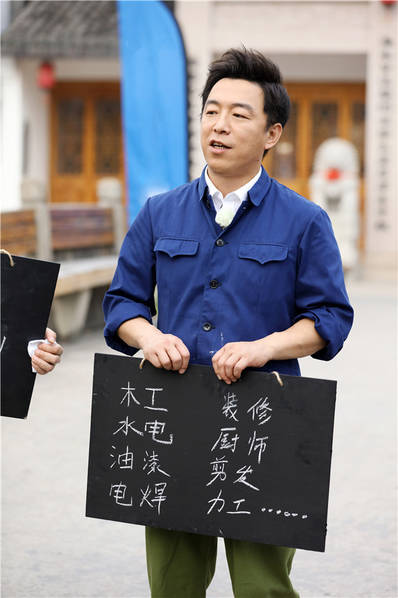 木工 装修
水电 厨师
油漆 剪发
电焊 力工……